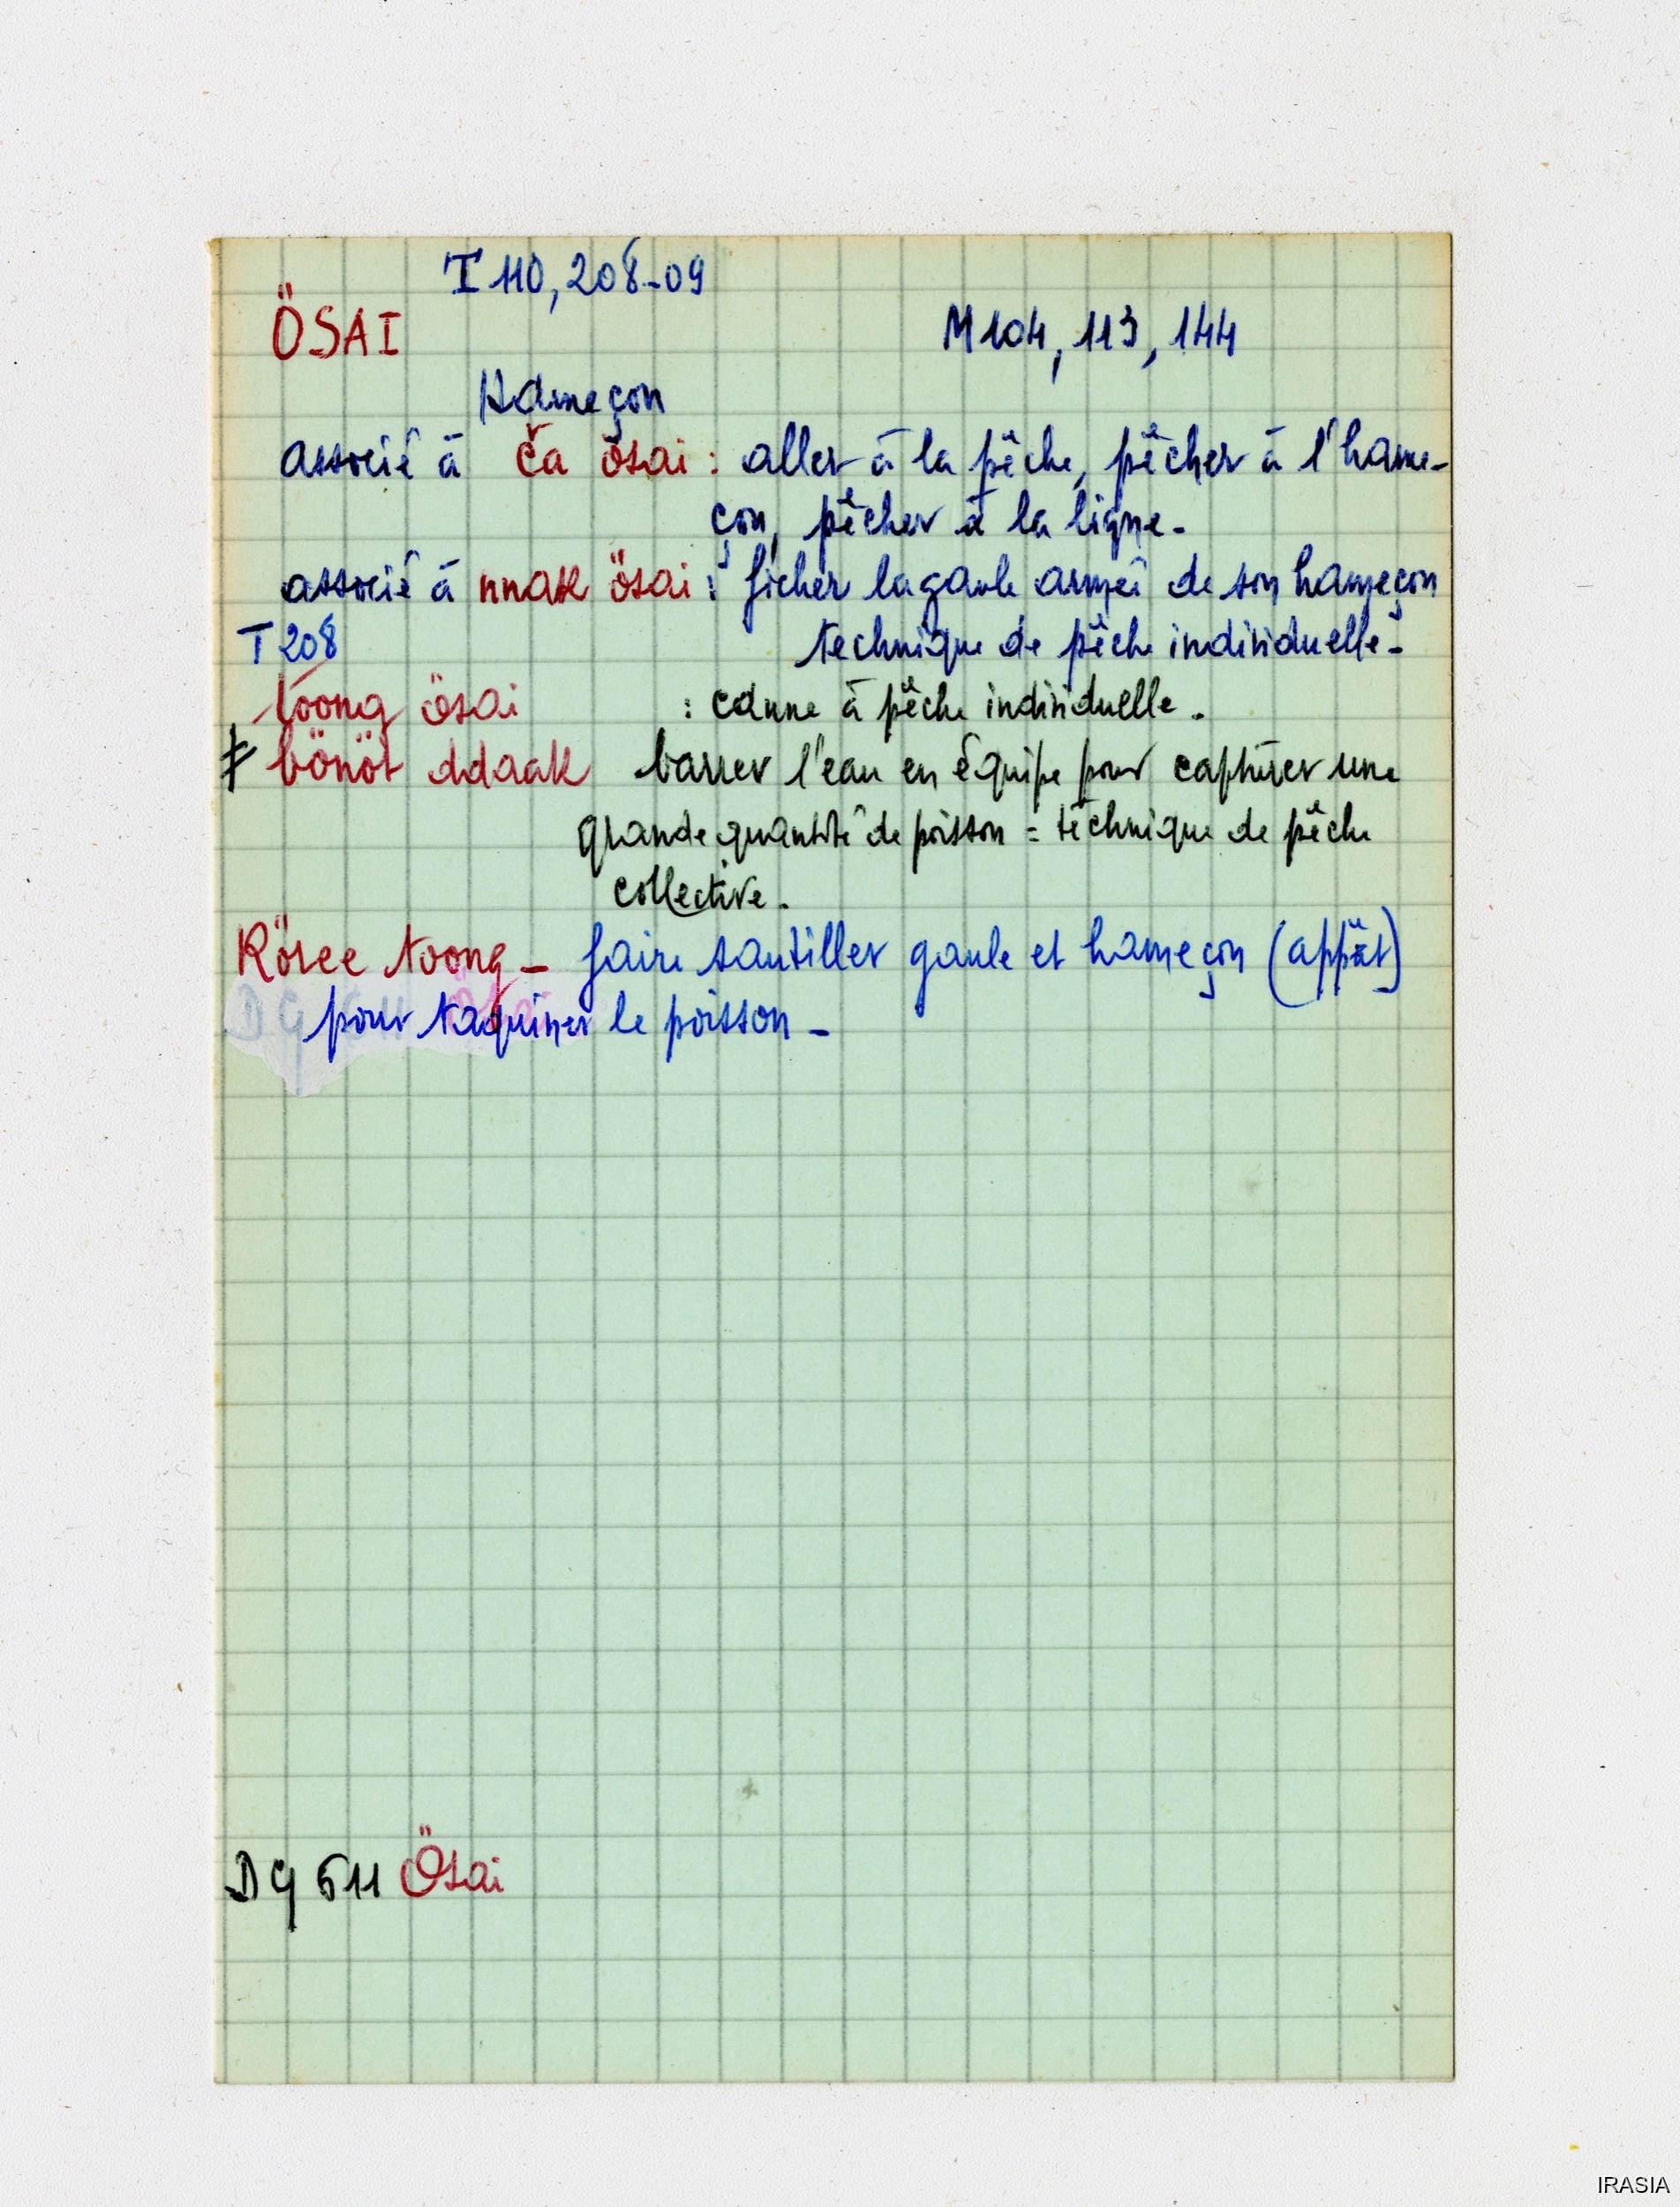 T 110, 208-09
ÖSAI
M 104, 113, 144
Hameçon
associé à ča ösai : aller à la pêche, pêcher à l'hame-
çon, pêcher à la ligne-
associé à nnak ösai : ficher la gaule armée de son hameçon
T 208 technique de pêche individuelle-
toong ösai : canne à pêche individuelle.
≠ bönöt ddaak barrer l'eau en équipe pour capturer une
grande quantité de poisson = technique de pêche
collective.
Rösee toong - faire sautiller gaule et hameçon (appât)
pour taquiner le poisson -
DG 511 Ösai
IRASIA